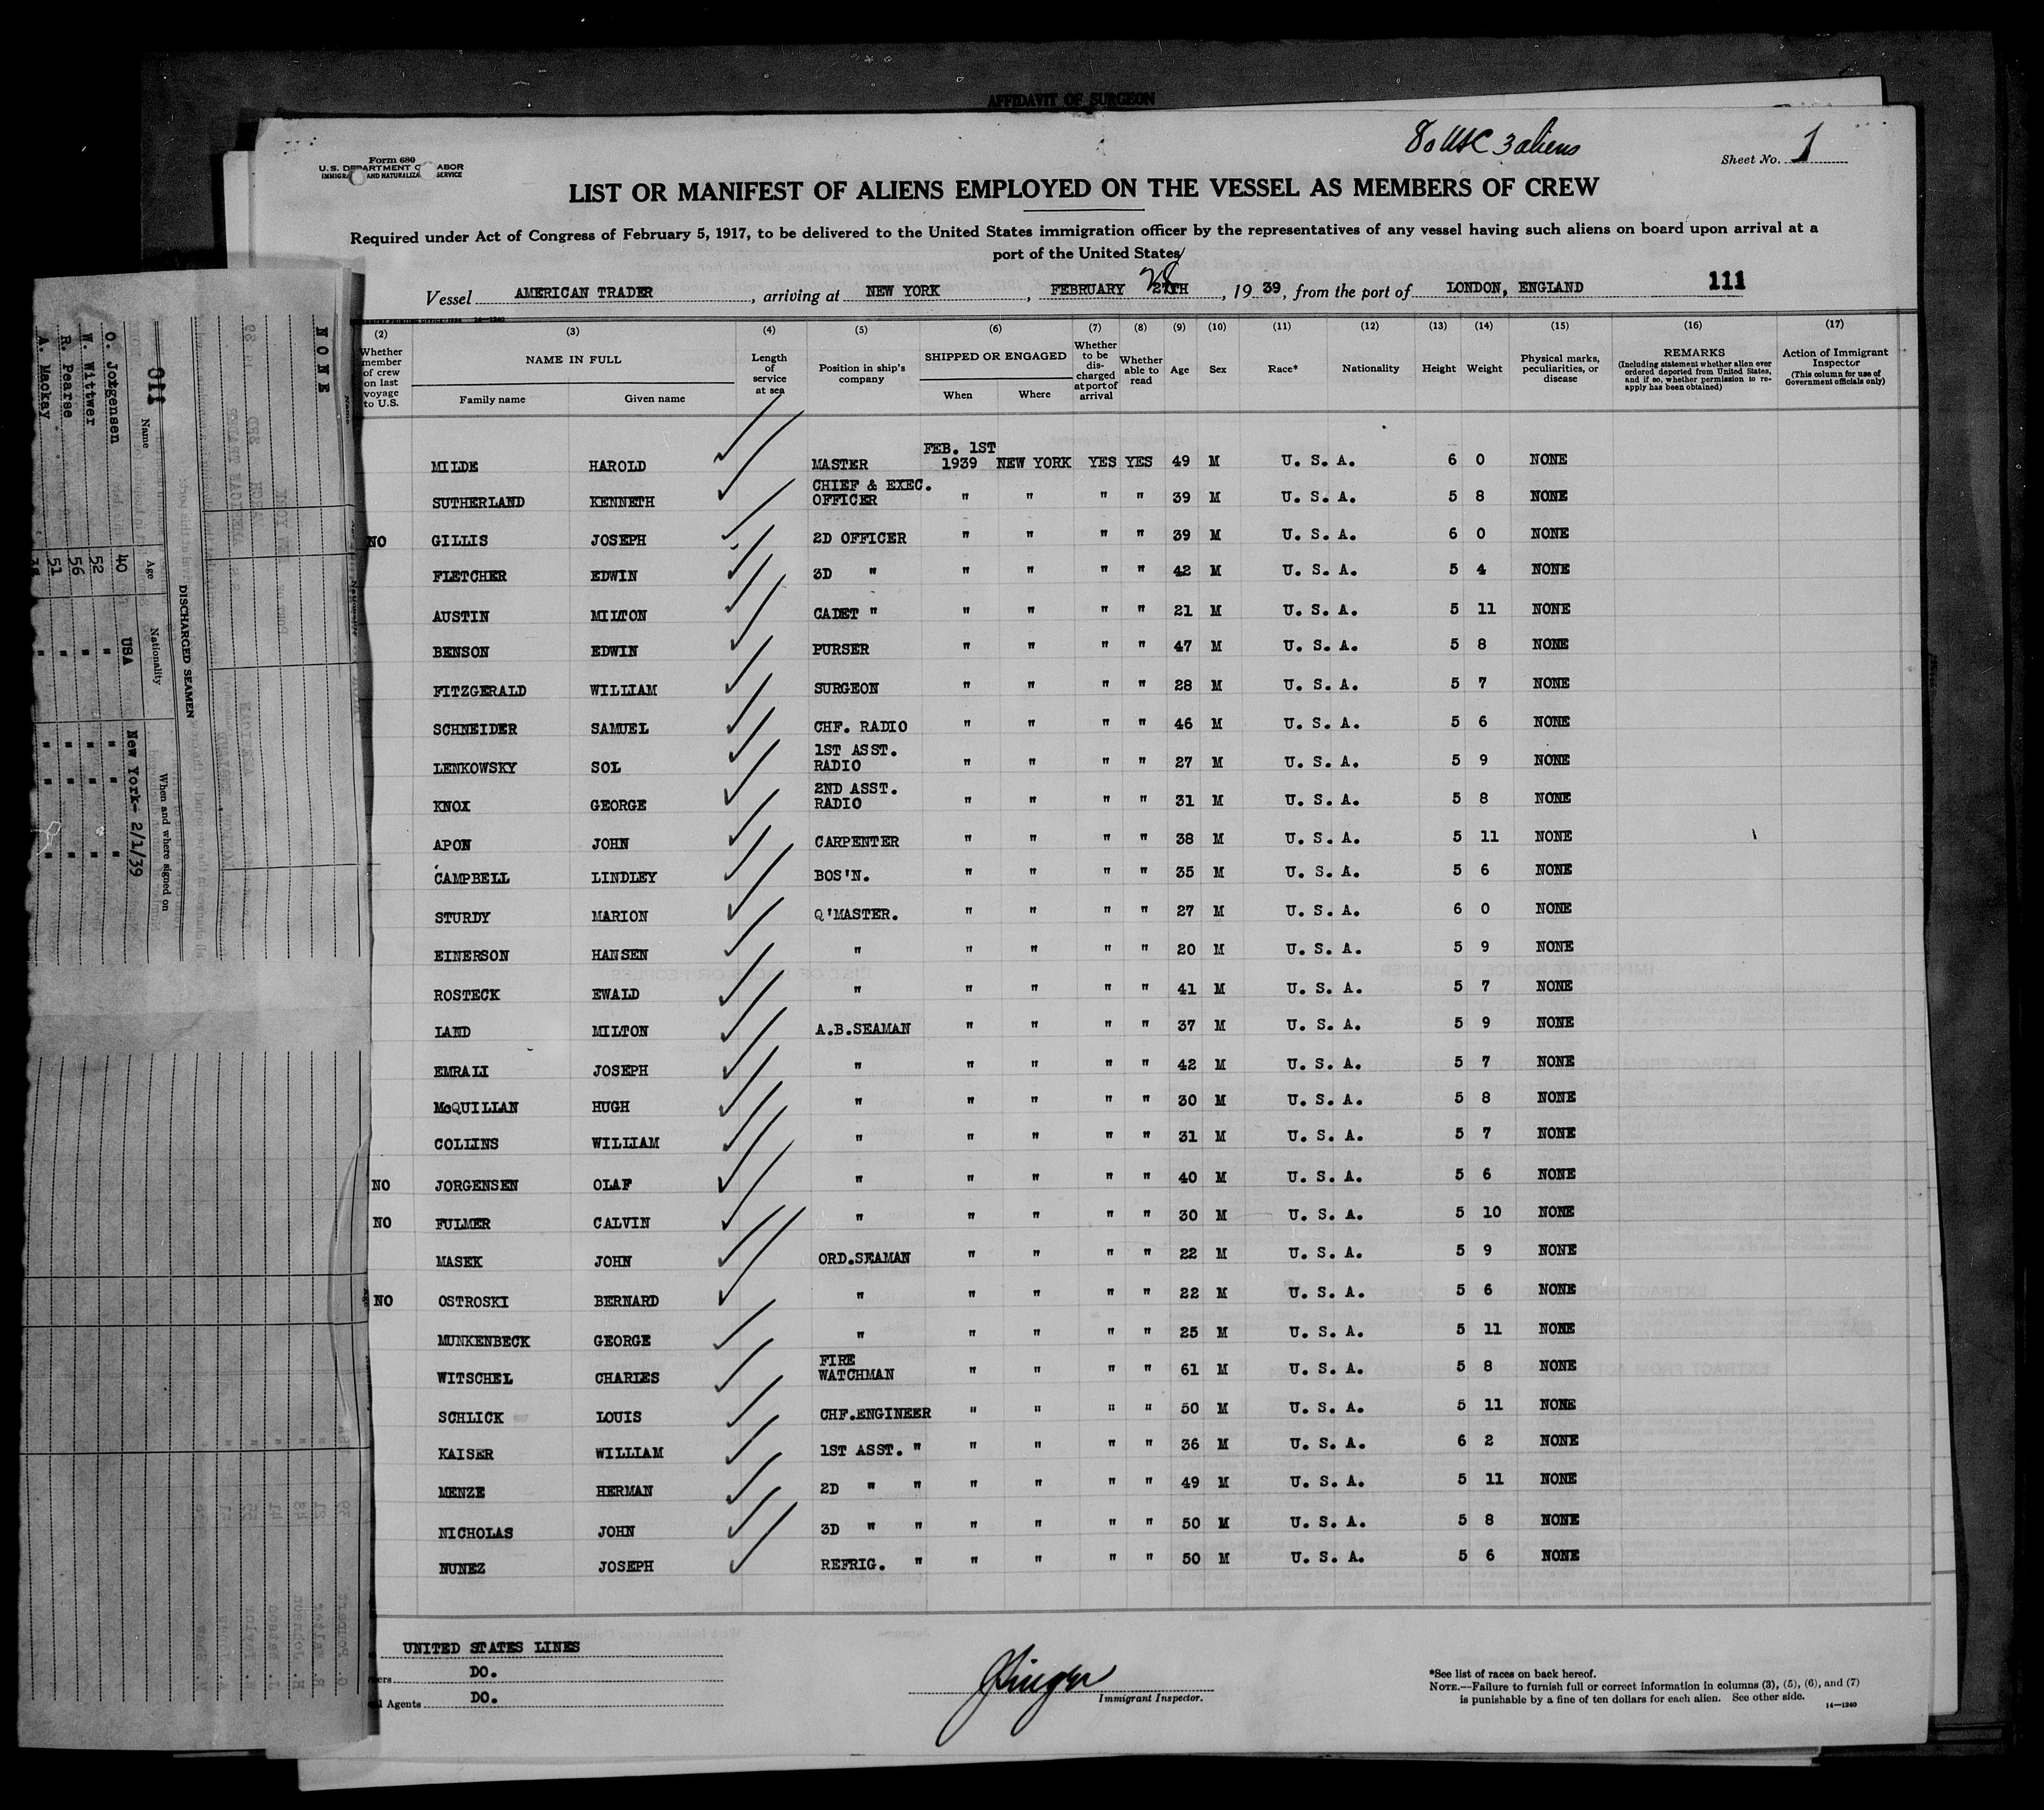 AFFIDAVIT OF SURGEON
80 USC 3 aliens
Form 680
U.S. DEPARTMENT OF LABOR
IMMIGRATION AND NATURALIZATION SERVICE
Sheet No. 1
LIST OR MANIFEST OF ALIENS EMPLOYED ON THE VESSEL AS MEMBERS OF CREW
Required under Act of Congress of February 5, 1917, to be delivered to the United States immigration officer by the representatives of any vessel having such aliens on board upon arrival at a
port of the United States
28
Vessel AMERICAN TRADER, arriving at NEW YORK, FEBRUARY 27TH, 1939, from the port of LONDON, ENGLAND 111
(2) (3) (4) (5) (6) (7) (8) (9) (10) (11) (12) (13) (14) (15) (16) (17)
Whether member of crew on last voyage to U.S. NAME IN FULL Family name Given name Length of service at sea Position in ship's company SHIPPED OR ENGAGED When Where Whether to be discharged at port of arrival Whether able to read Age Sex Race* Nationality Height Weight Physical marks, peculiarities, or disease REMARKS (Including statement whether alien ever ordered deported from United States, and if so, whether permission to reapply has been obtained) Action of Immigrant Inspector (This column for use of Government officials only)
MILDE HAROLD MASTER FEB. 1ST 1939 NEW YORK YES YES 49 M U. S. A. 6 0 NONE
SUTHERLAND KENNETH CHIEF & EXEC. OFFICER " " " " 39 M U. S. A. 5 8 NONE
NO GILLIS JOSEPH 2D OFFICER " " " " 39 M U. S. A. 6 0 NONE
FLETCHER EDWIN 3D " " " " " 42 M U. S. A. 5 4 NONE
AUSTIN MILTON CADET " " " " " 21 M U. S. A. 5 11 NONE
BENSON EDWIN PURSER " " " " 47 M U. S. A. 5 8 NONE
FITZGERALD WILLIAM SURGEON " " " " 28 M U. S. A. 5 7 NONE
SCHNEIDER SAMUEL CHF. RADIO " " " " 46 M U. S. A. 5 6 NONE
LENKOWSKY SOL 1ST ASST. RADIO " " " " 27 M U. S. A. 5 9 NONE
KNOX GEORGE 2ND ASST. RADIO " " " " 31 M U. S. A. 5 8 NONE
APON JOHN CARPENTER " " " " 38 M U. S. A. 5 11 NONE
CAMPBELL LINDLEY BOS'N. " " " " 35 M U. S. A. 5 6 NONE
STURDY MARION Q'MASTER. " " " " 27 M U. S. A. 6 0 NONE
EINERSON HANSEN " " " " " 20 M U. S. A. 5 9 NONE
ROSTECK EWALD " " " " " 41 M U. S. A. 5 7 NONE
LAND MILTON A.B.SEAMAN " " " " 37 M U. S. A. 5 9 NONE
EMRALI JOSEPH " " " " " 42 M U. S. A. 5 7 NONE
McQUILLAN HUGH " " " " " 30 M U. S. A. 5 8 NONE
COLLINS WILLIAM " " " " " 31 M U. S. A. 5 7 NONE
NO JORGENSEN OLAF " " " " " 40 M U. S. A. 5 6 NONE
NO FULMER CALVIN " " " " " 30 M U. S. A. 5 10 NONE
MASEK JOHN ORD.SEAMAN " " " " 22 M U. S. A. 5 9 NONE
NO OSTROSKI BERNARD " " " " " 22 M U. S. A. 5 6 NONE
MUNKENBECK GEORGE " " " " " 25 M U. S. A. 5 11 NONE
WITSCHEL CHARLES FIRE WATCHMAN " " " " 61 M U. S. A. 5 8 NONE
SCHLICK LOUIS CHF.ENGINEER " " " " 50 M U. S. A. 5 11 NONE
KAISER WILLIAM 1ST ASST. " " " " " 36 M U. S. A. 6 2 NONE
MENZE HERMAN 2D " " " " " " 49 M U. S. A. 5 11 NONE
NICHOLAS JOHN 3D " " " " " " 50 M U. S. A. 5 8 NONE
NUNEZ JOSEPH REFRIG. " " " " " 50 M U. S. A. 5 6 NONE
UNITED STATES LINES
DO.
Agents DO.
Immigrant Inspector.
*See list of races on back hereof.
NOTE.—Failure to furnish full or correct information in columns (3), (5), (6), and (7)
is punishable by a fine of ten dollars for each alien. See other side.
14—1240
NONE
DISCHARGED SEAMEN
011
Name Age Nationality When and where signed on
O. Jorgensen 40 USA New York- 2/1/39
W. Wittwer 52 " " " "
R. Pearse 56 " " " "
A. Mackay 51 " " " "